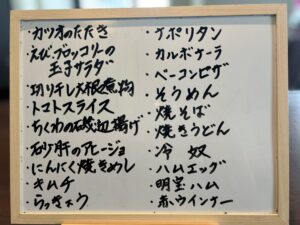 ・カツオのたたき
・えび、ブッコリーの
玉子サラダ
・切り干し大根煮物
・トマトスライス
・ちくわの磯辺揚げ
・砂肝のアヒージョ
・にんにく焼きめし
・キムチ
・らっきょう
・ナポリタン
・カルボナーラ
・ベーコンピザ
・そうめん
・焼そば
・焼きうどん
・冷奴
・ハムエッグ
・明宝ハム
・赤ウインナー